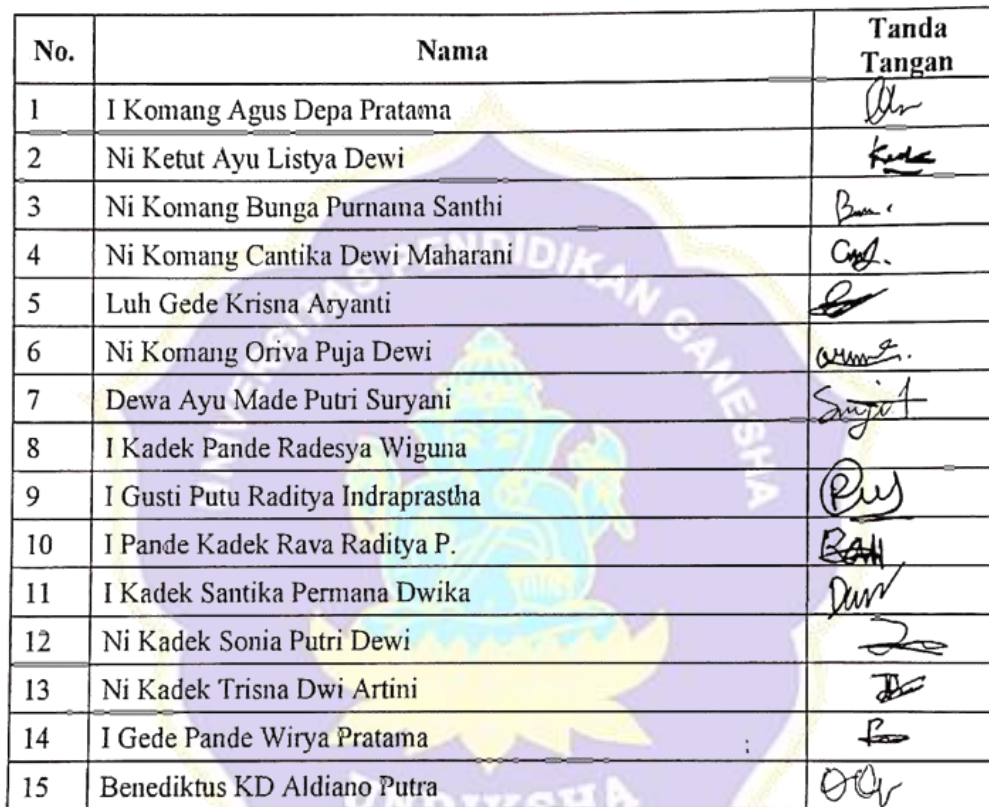 No. Nama Tanda Tangan
1 I Komang Agus Depa Pratama
2 Ni Ketut Ayu Listya Dewi
3 Ni Komang Bunga Purnama Santhi
4 Ni Komang Cantika Dewi Maharani
5 Luh Gede Krisna Aryanti
6 Ni Komang Oriva Puja Dewi
7 Dewa Ayu Made Putri Suryani
8 I Kadek Pande Radesya Wiguna
9 I Gusti Putu Raditya Indraprastha
10 I Pande Kadek Rava Raditya P.
11 I Kadek Santika Permana Dwika
12 Ni Kadek Sonia Putri Dewi
13 Ni Kadek Trisna Dwi Artini
14 I Gede Pande Wirya Pratama
15 Benediktus KD Aldiano Putra
UNIVERSITAS PENDIDIKAN GANESHA
UNDIKSHA